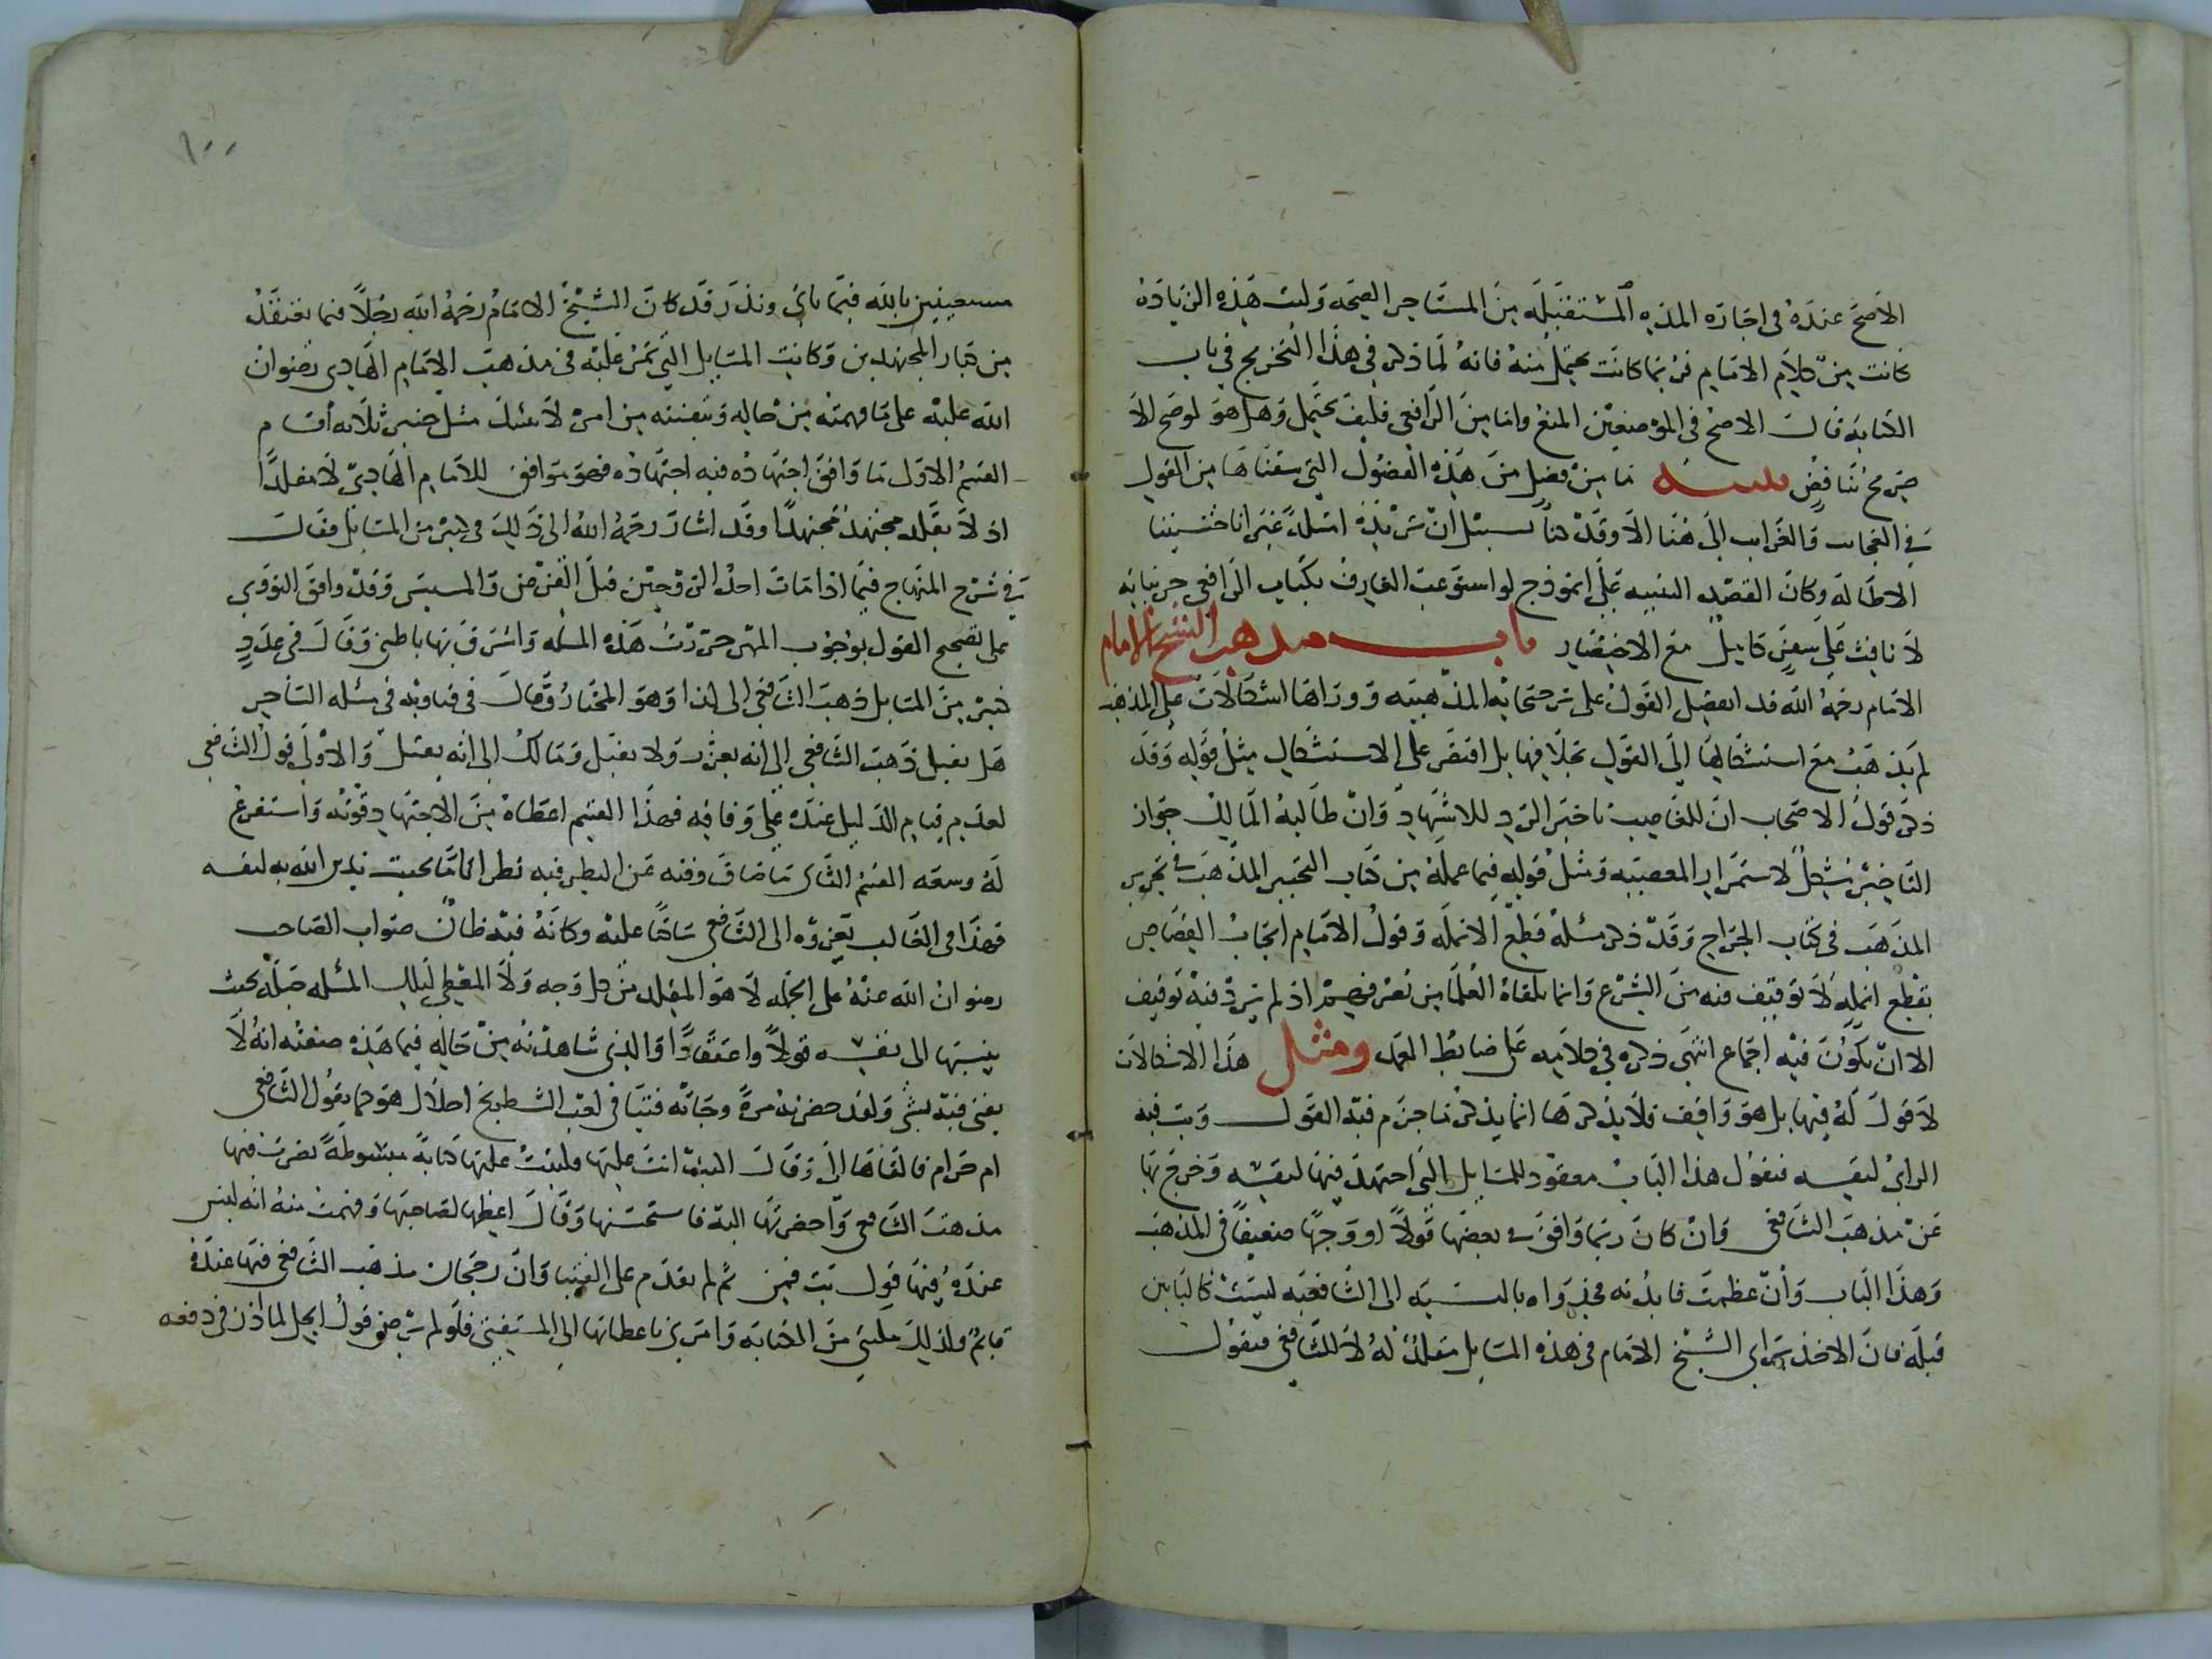 الاصح عنده فى اجارة المده المستقبله من المستاجر الصحه وليت هذه الزيادة
كانت من كلام الامام فربما كانت يحتمل منه فانه لما ذكر في هذا التخريج في باب
الكتابة قال الاصح في الموضعين المنع واما من الرافعى فكيف يحتمل وهل هو لوضح الا
صريح تناقض ما من فصل من هذه الفصول التي سقناها من القول
في العجاب والغراب الى هنا الا وقد كنا بسبيل ان نزيده امثلة غير انا خشينا
الاطالة وكان القصد التنبيه على انموذج لو استوعبت العارف بكتاب الرافعى جزئياته
لأنافت على سفر كامل مع الاختصار باب مذهب الشيخ الامام
الامام رحمه الله قد انفصل القول على ترجيحاته المذهبيه ووراها اشكالات على المذهب
لم يذهب مع استشكالها الى القول بخلافها بل اقتصر على الاستشكال مثل قوله وقد
ذكر قول الاصحاب ان للغاصب تاخير الرد للاشهاد وان طالبه المالك جواز
التاخير مشكل لاستمرار المعصيه ومثل قوله فيما عمله من كتاب التحبير المذهب في تحرير
المذهب في كتاب الجراح وقد ذكر مسئلة قطع الانملة وقول الامام ايجاب القصاص
بقطع انمله لا توقيف فيه من الشرع وانما تلقاه العلماء من اذ لم يرد فيه توقيف
الا ان يكون فيه اجماع انتهى ذكره في كلامه على ضابط العمد ومثل هذا الاشكالات
لا قول له فيها بل هو واقف ولا يذكرها انما يذكر ما جزم فيه القول وبت فيه
الراى لنفسه فنقول هذا الباب معقود للمسايل التي اجتهد فيها لنفسه وخرج بها
عن مذهب الشافعى وان كان ربما وافق بعضها قولا او وجها ضعيفا في المذهب
وهذا الباب وان عظمت فايدته فجدواه بالنسبه الى الشافعيه ليست كالبابين
قبله فان الاخذ براى الشيخ الامام في هذه المسايل مقلد له لا للشافعى فنقول
١٠٠
مستعينين بالله فيما ناتى ونذر قد كان الشيخ الامام رحمه الله رجلا فيما نعتقد
من كبار المجتهدين وكانت المسايل التي تمر عليه في مذهب الامام الهادى رضوان
الله عليه على ما فهمته من حاله وتيقنته من امره لا ثلاثة أقسام
القسم الاول ما وافق اجتهاده فيه اجتهاده فهو موافق للامام الهادى لا مقلدا
اذ لا يقلد مجتهد مجتهدا وقد اشار رحمه الله الى ذلك في كثير من المسايل فقال
في شرح المنهاج فيما اذا مات احد الزوجين قبل الفرض والمسيس وقد وافق النووى
على تصحيح القول بوجوب المهر حررت هذه المسله واشرف بها باطنى وقال في عدد
كثير من المسايل ذهب الشافعى الى كذا وهو المختار وقال في فتاويه في مسله الساحر
هل يقبل ذهب الشافعى الى انه يعزر ولا يقتل ومالك الى انه يقتل والاولى قول الشافعى
لعدم قيام الدليل عنده على وفاقه فهذا القسم اعطاه من الاجتهاد قوته واستفرغ
له وسعه القسم الثانى ما ضاق وقته عن النظر فيه نظرا تاما بحيث يدين الله به لنفسه
فهذا في الغالب يعزوه الى الشافعى ساكتا عليه وكانه فيه ظان صواب الصاحب
رضوان الله عنه على الجمله لا هو المقلد من كل وجه ولا المعطى لتلك المسله جهله بحيث
ينسبها الى نفسه قولا واعتقادا والذى شاهدته من حاله فيما هذه صفته انه لا
يفتى فيه بشئ ولقد حضرته مرة وجاته فتيا في لعب الشطرنج احلال هو كما يقول الشافعى
ام حرام فالقاها الى وقال اكتب انت عليها فكتبت عليها كتابة مبسوطة نصرت فيها
مذهب الشافعى واحضرتها اليه فاستحسنها وقال اعطها لصاحبها وفهمت منه انه ليس
عنده فيها قول بت فمن ثم لم يقدم على الفتيا وان رجحان مذهب الشافعى فيها عنده
قايم ولذلك مكننى من الكتابه وامرنى باعطائها الى المستفتى فلو لم يرض قول الحل لما اذن في دفعه